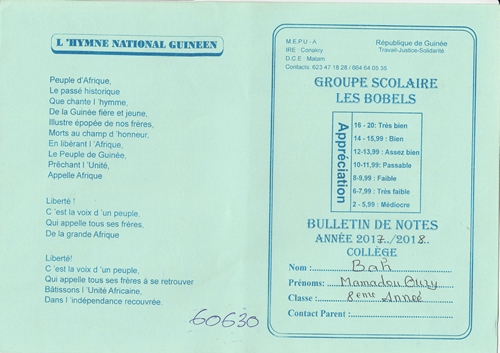 L 'HYMNE NATIONAL GUINEEN
Peuple d'Afrique,
Le passé historique
Que chante l 'hymne,
De la Guinée fière et jeune,
Illustre épopée de nos frères,
Morts au champ d 'honneur,
En libérant l 'Afrique,
Le Peuple de Guinée,
Prêchant l 'Unité,
Appelle Afrique
Liberté !
C 'est la voix d 'un peuple,
Qui appelle tous ses frères,
De la grande Afrique
Liberté!
C 'est la voix d 'un peuple,
Qui appelle tous ses frères à se retrouver
Bâtissons l 'Unité Africaine,
Dans l 'indépendance recouvrée.
60630
M.E.P.U - A
IRE : Conakry
D.C.E : Matam
Contacts: 623 47 18 28 / 664 64 05 35
République de Guinée
Travail-Justice-Solidarité
GROUPE SCOLAIRE
LES BOBELS
Appréciation
16 - 20: Très bien
14 - 15,99 : Bien
12-13,99 : Assez bien
10-11,99: Passable
8-9,99 : Faible
6-7,99 : Très faible
2 - 5,99 : Médiocre
BULLETIN DE NOTES
ANNÉE 2017../2018..
COLLÈGE
Nom : Bah
Prénoms: Mamadou Oury
Classe : 8ème Année
Contact Parent :